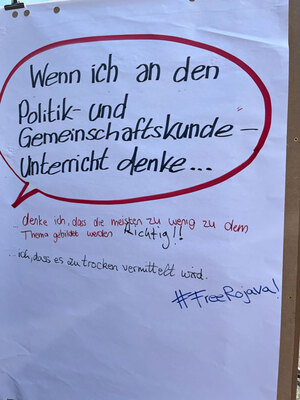 Wenn ich an den
Politik- und
Gemeinschaftskunde-
Unterricht denke...
denke ich, dass die meisten zu wenig zu dem
Thema gebildet werden Richtig!!
...ich, dass es zu trocken vermittelt wird.
#FreeRojava!